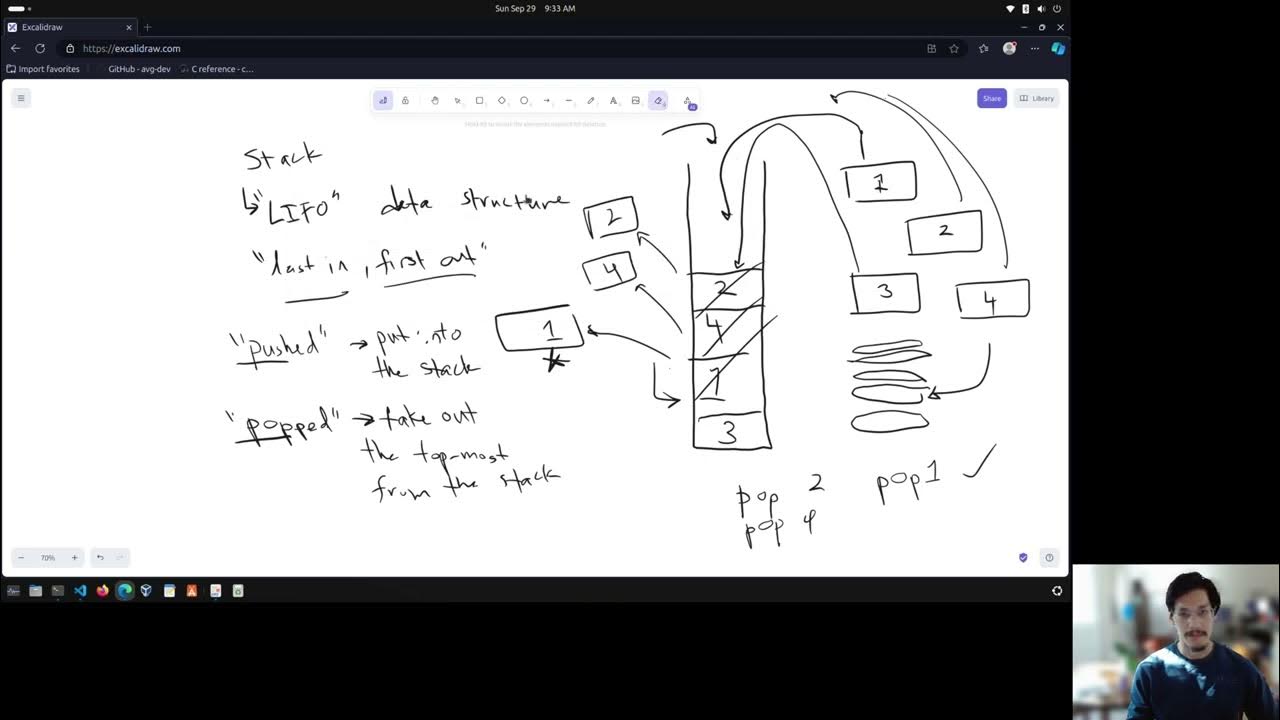 Sun Sep 29 9:33 AM
Excalidraw
https://excalidraw.com
Import favorites
GitHub - avg-dev
C reference - c...
Share
Library
Stack
"LIFO" data structure
"last in, first out"
"pushed" → put into
the stack
"popped" → take out
the top-most
from the stack
2
4
1
2
4
1
3
1
2
3
4
pop 2
pop 4
pop 1 ✓
70%